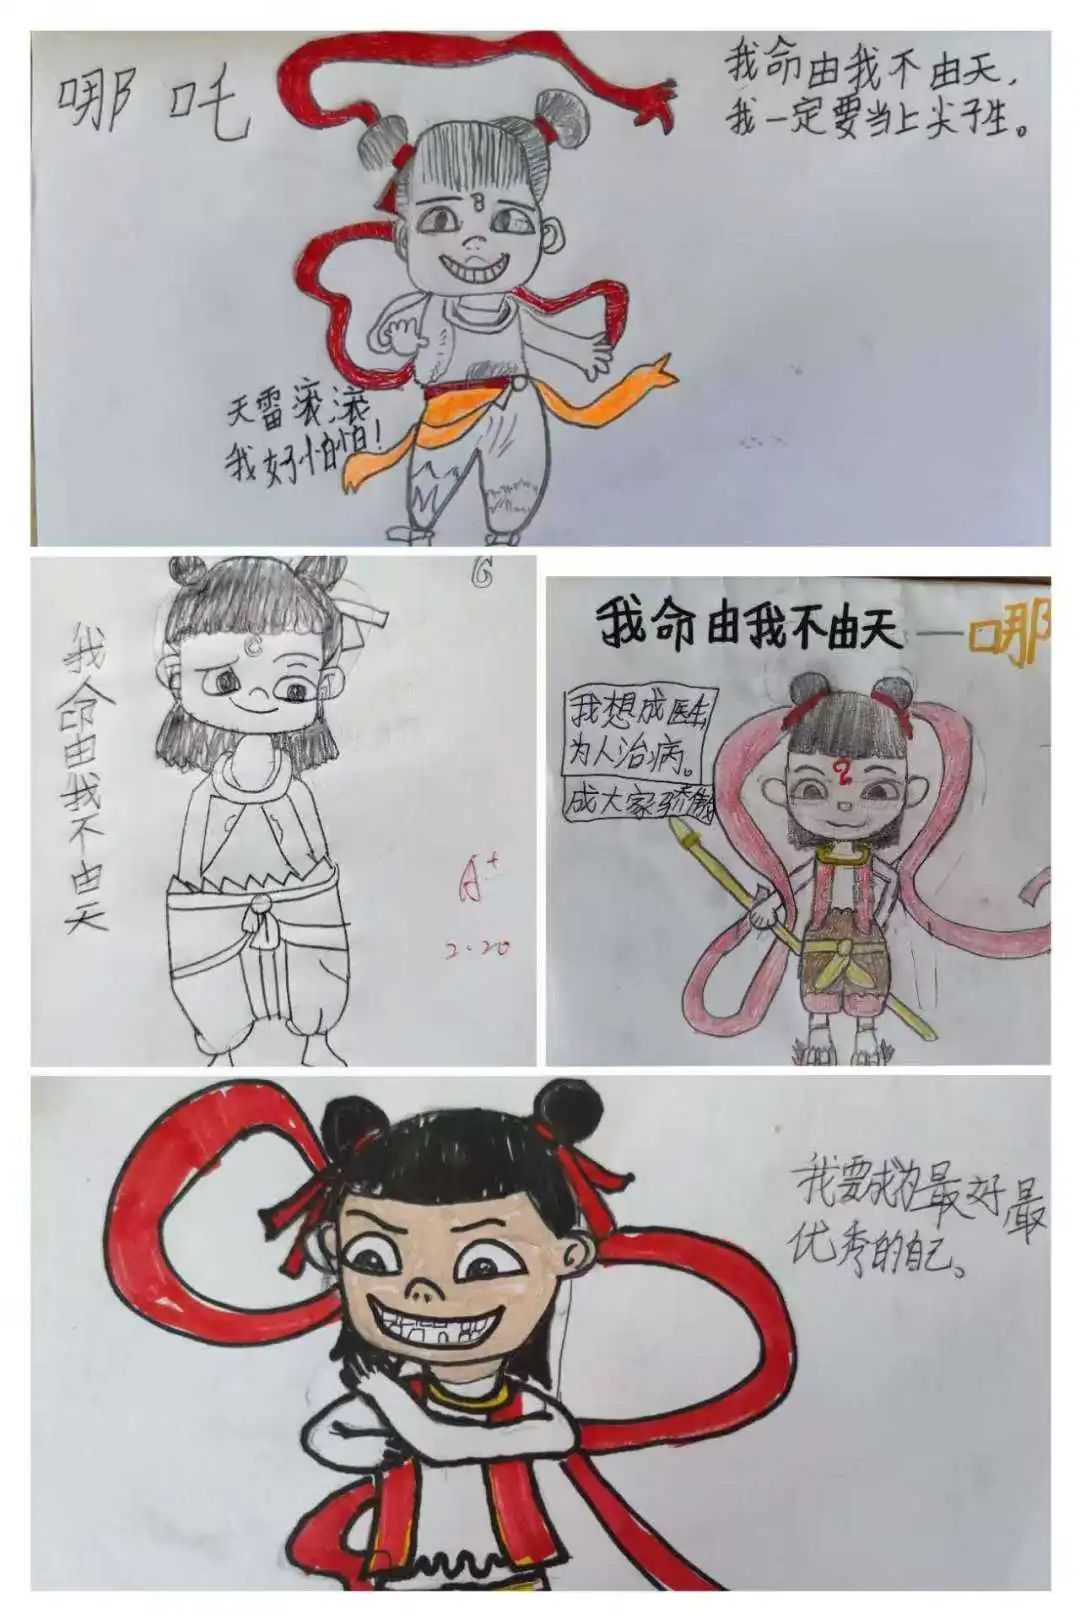 哪吒
我命由我不由天，
我一定要当上尖子生。
天雷滚滚
我好怕怕！
我命由我不由天
A+
2.20
我命由我不由天——哪
我想成医生
为人治病。
成大家骄傲
我要成为最好最
优秀的自己。